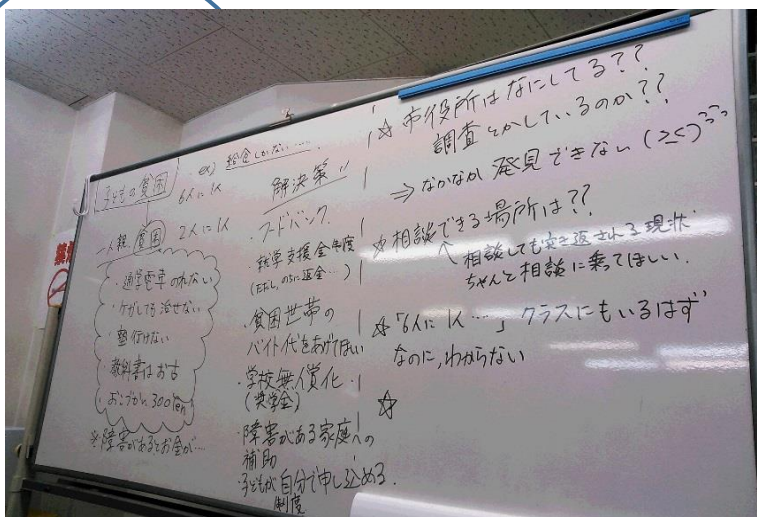 子どもの貧困
ex) 給食しかない……
6人に1人
一人親 貧困 2人に1人
・通学電車のれない
・ケガしても治せない
・塾行けない
・教科書はお古
おこづかい300円
※障害があるとお金が…
解決策!!
・フードバンク
・就学支援金制度
(ただし、のちに返金…)
・貧困世帯の
バイト代をあげてほしい
・学校無償化
(奨学金)
・障害がある家庭への
補助
・子どもが自分で申し込める
制度
☆市役所はなにしてる??
調査とかしているのか??
⇒なかなか発見できない(><)
☆相談できる場所は??
相談しても突き返される現状
ちゃんと相談に乗ってほしい.
☆「6人に1人…」クラスにもいるはず
なのに,わからない
☆